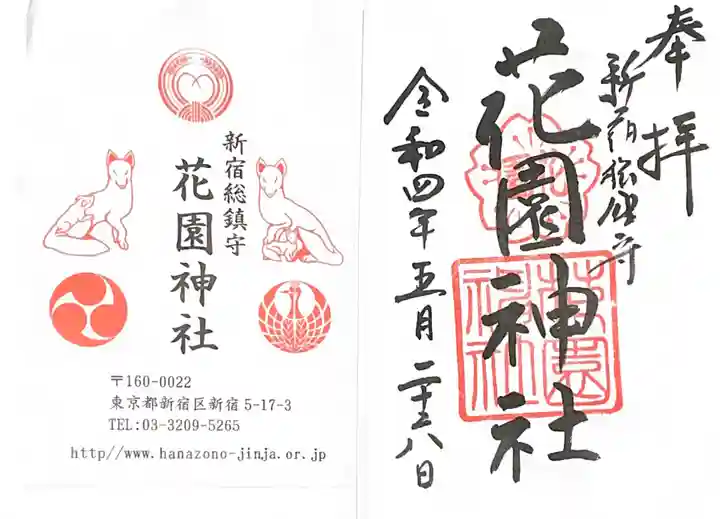 新宿総鎮守
花園神社
〒160-0022
東京都新宿区新宿5-17-3
TEL:03-3209-5265
http//www.hanazono-jinja.or.jp
奉拝
新宿総鎮守
花園神社
令和四年五月二十八日
花園
神社